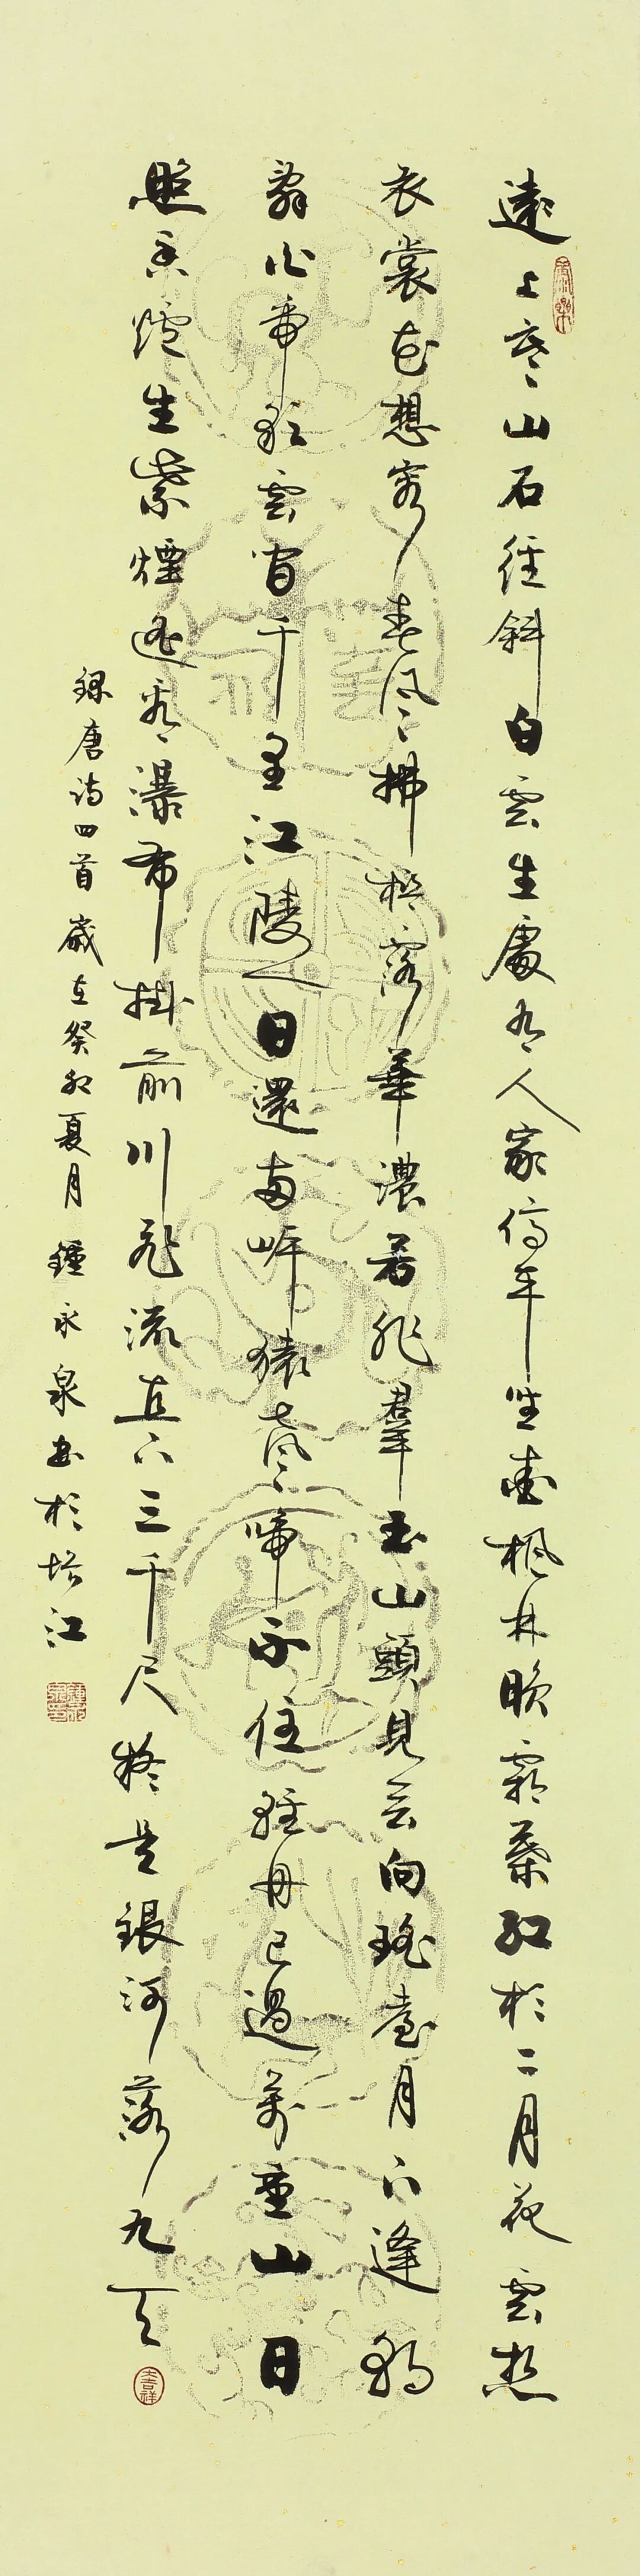 遠上寒山石徑斜白雲生處有人家停車坐愛楓林晚霜葉紅於二月花雲想
衣裳花想容春風拂檻露華濃若非羣玉山頭見会向瑤臺月下逢朝
辭白帝彩雲間千里江陵一日還兩岸猿聲啼不住輕舟已過萬重山日
照香爐生紫煙遙看瀑布掛前川飛流直下三千尺疑是銀河落九天
大吉祥
錄唐詩四首歲在癸卯夏月鍾永泉書於江